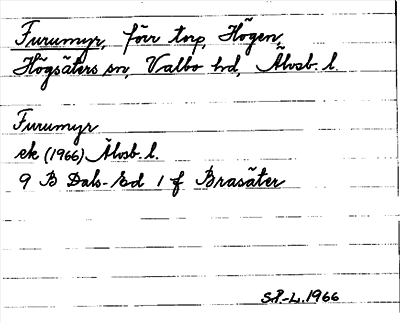 Furumyr, förr torp, Högen,
Högsäters sn, Valbo hd, Älvsb. l.
Furumyr
ek (1966) Älvsb. l.
9 B Dals-Ed 1 f Brasäter
S.P.-L. 1966